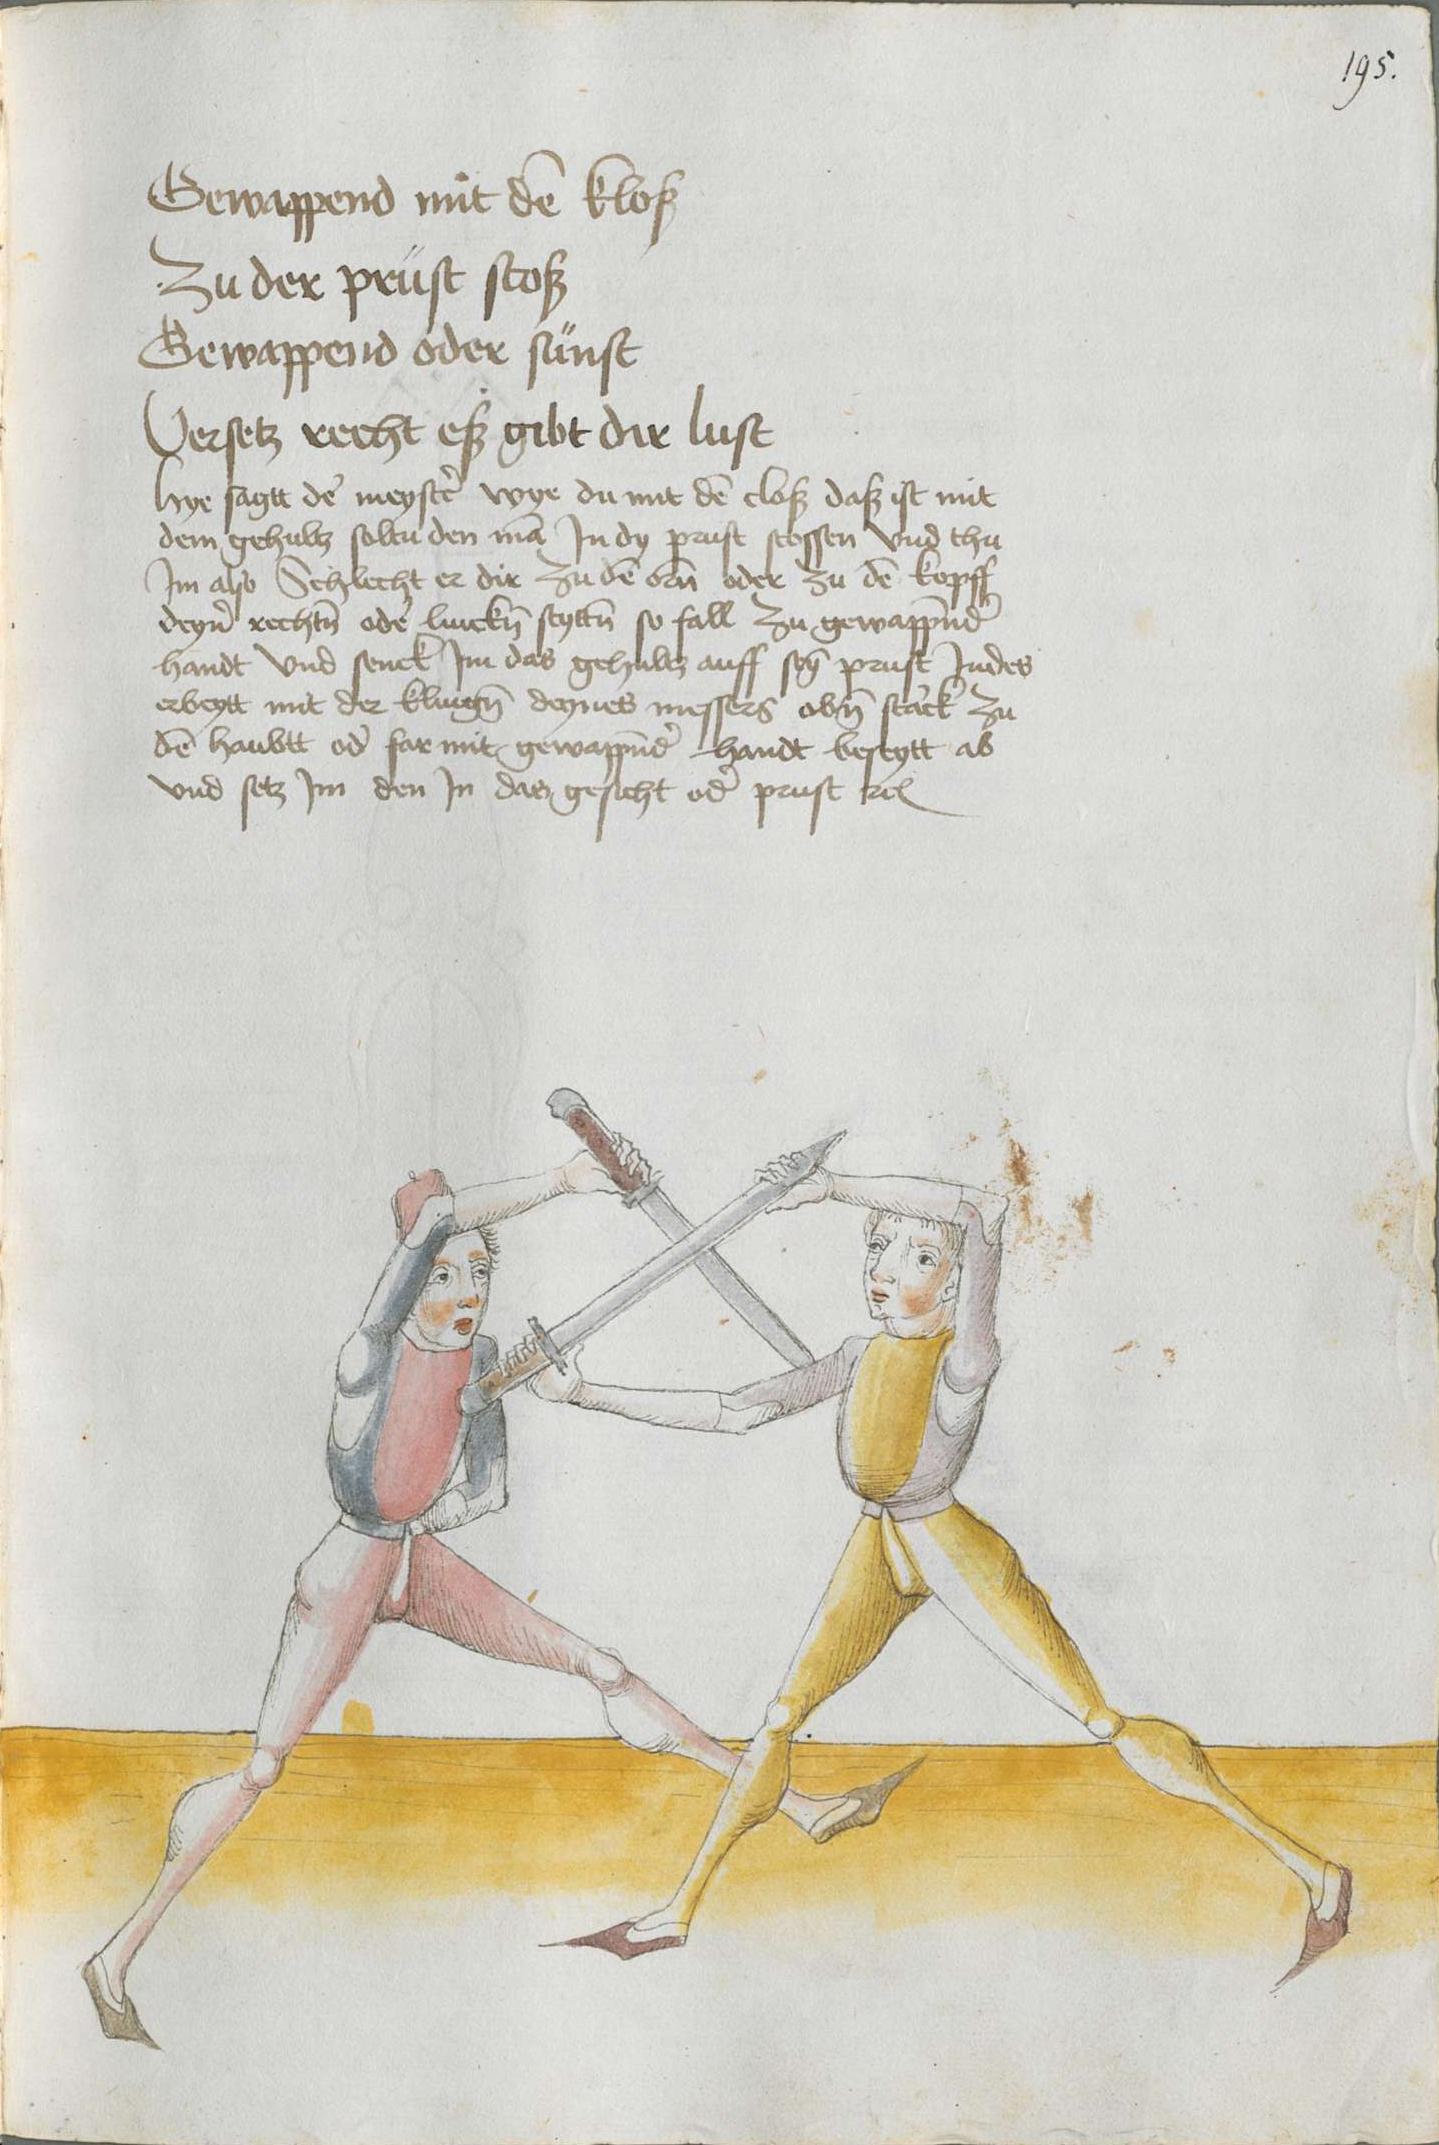 195.
Gewappend mit dē kloß
Zu der prüst stoß
Gewappend oder sünst
Versetz recht eß gibt dir lust
Hye sagtt de᷑ meyste᷑ wye du mit dē cloß daß ist mit
dem gehultz soltu den mā In dy prust stossen vnd thu
Im also Schlecht er dir zu dē orn̄ oder zu dē kopff
deyn᷑ rechtn̄ ode᷑ linckn̄ seyttn̄ so fall zu gewappn̄d᷑
handt vnd senck Im das gehultz auff sey̅ prust Indes
erbeytt mit der klingn̄ deynes messers obn̄ starck zu
dē haubtt od᷑ far mit gewappn̄d᷑ handt beseytt ab
vnd setz Im den In das gesicht od᷑ prust